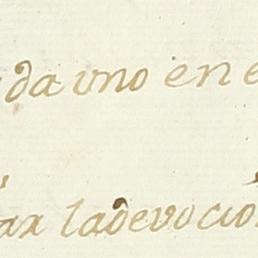 da uno en e
ax la devoció